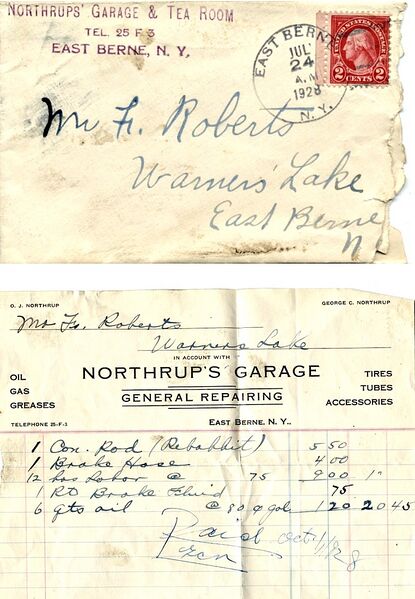 NORTHRUPS' GARAGE & TEA ROOM
TEL. 25 F 3
EAST BERNE, N. Y.
EAST BERNE
JUL
24
A.M
1928
N.Y.
UNITED STATES POSTAGE
2 CENTS 2
Mr Fr. Roberts
Warners' Lake
East Berne
N.
O. J. NORTHRUP
GEORGE C. NORTHRUP
Mr Fr. Roberts
Warners Lake
IN ACCOUNT WITH
NORTHRUP'S GARAGE
GENERAL REPAIRING
OIL
GAS
GREASES
TIRES
TUBES
ACCESSORIES
TELEPHONE 25-F-3
EAST BERNE, N. Y.
1 Con. Rod (Rebabbit) 5 50
1 Brake Hose 4 00
12 hrs Labor @ 75 9 00
1 Pt Brake Fluid 75
6 qts oil @ 80 ¢ gal 1 20 20 45
Paid Oct 1/28
GCN